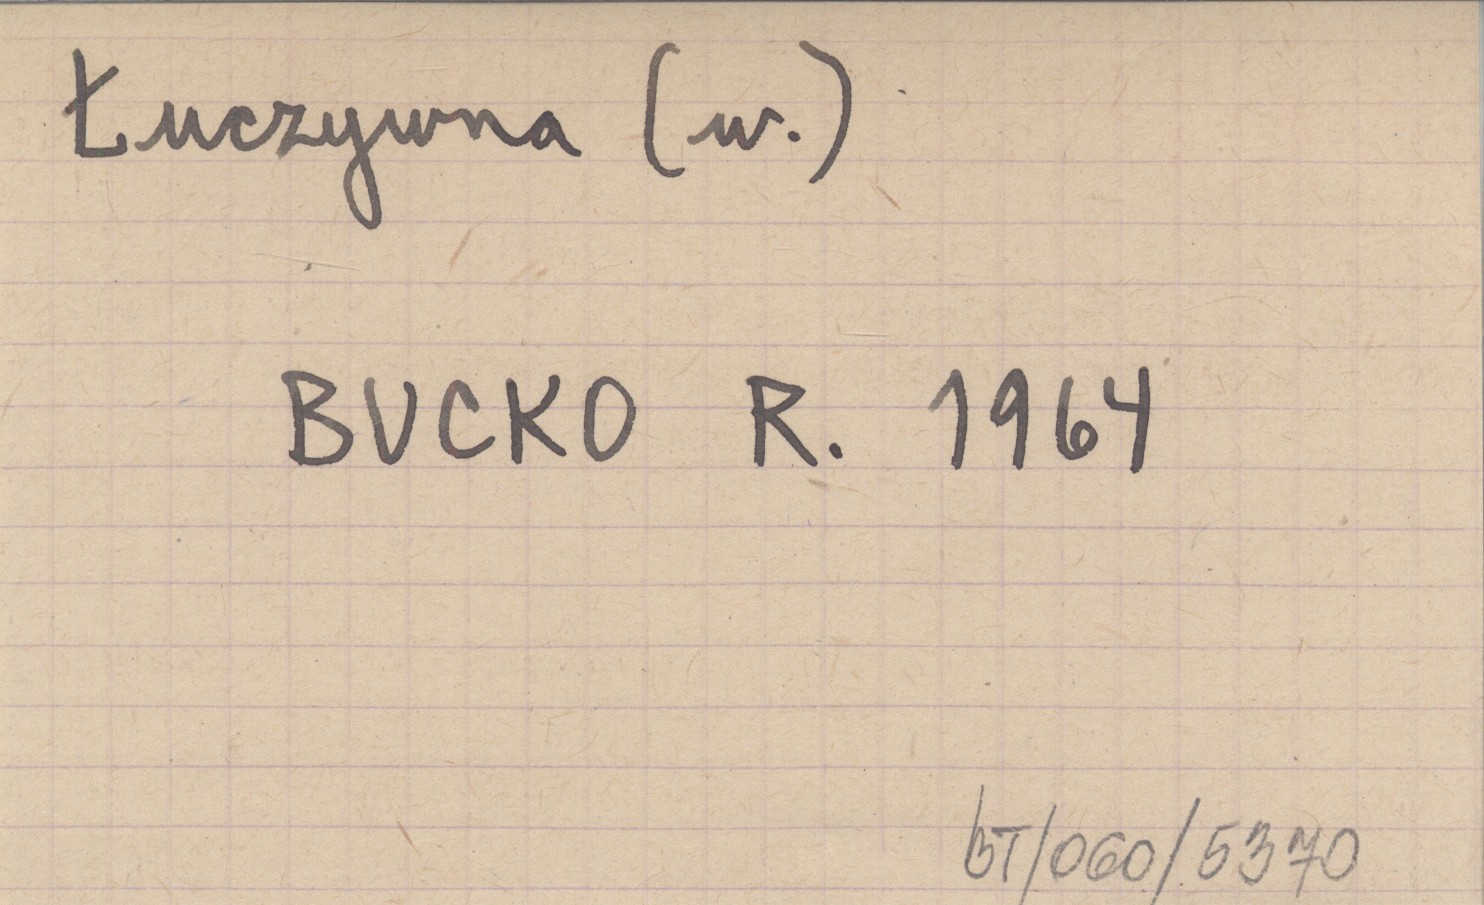 Łuczywna (w.)
BUCKO R. 1964
BT/060/5370